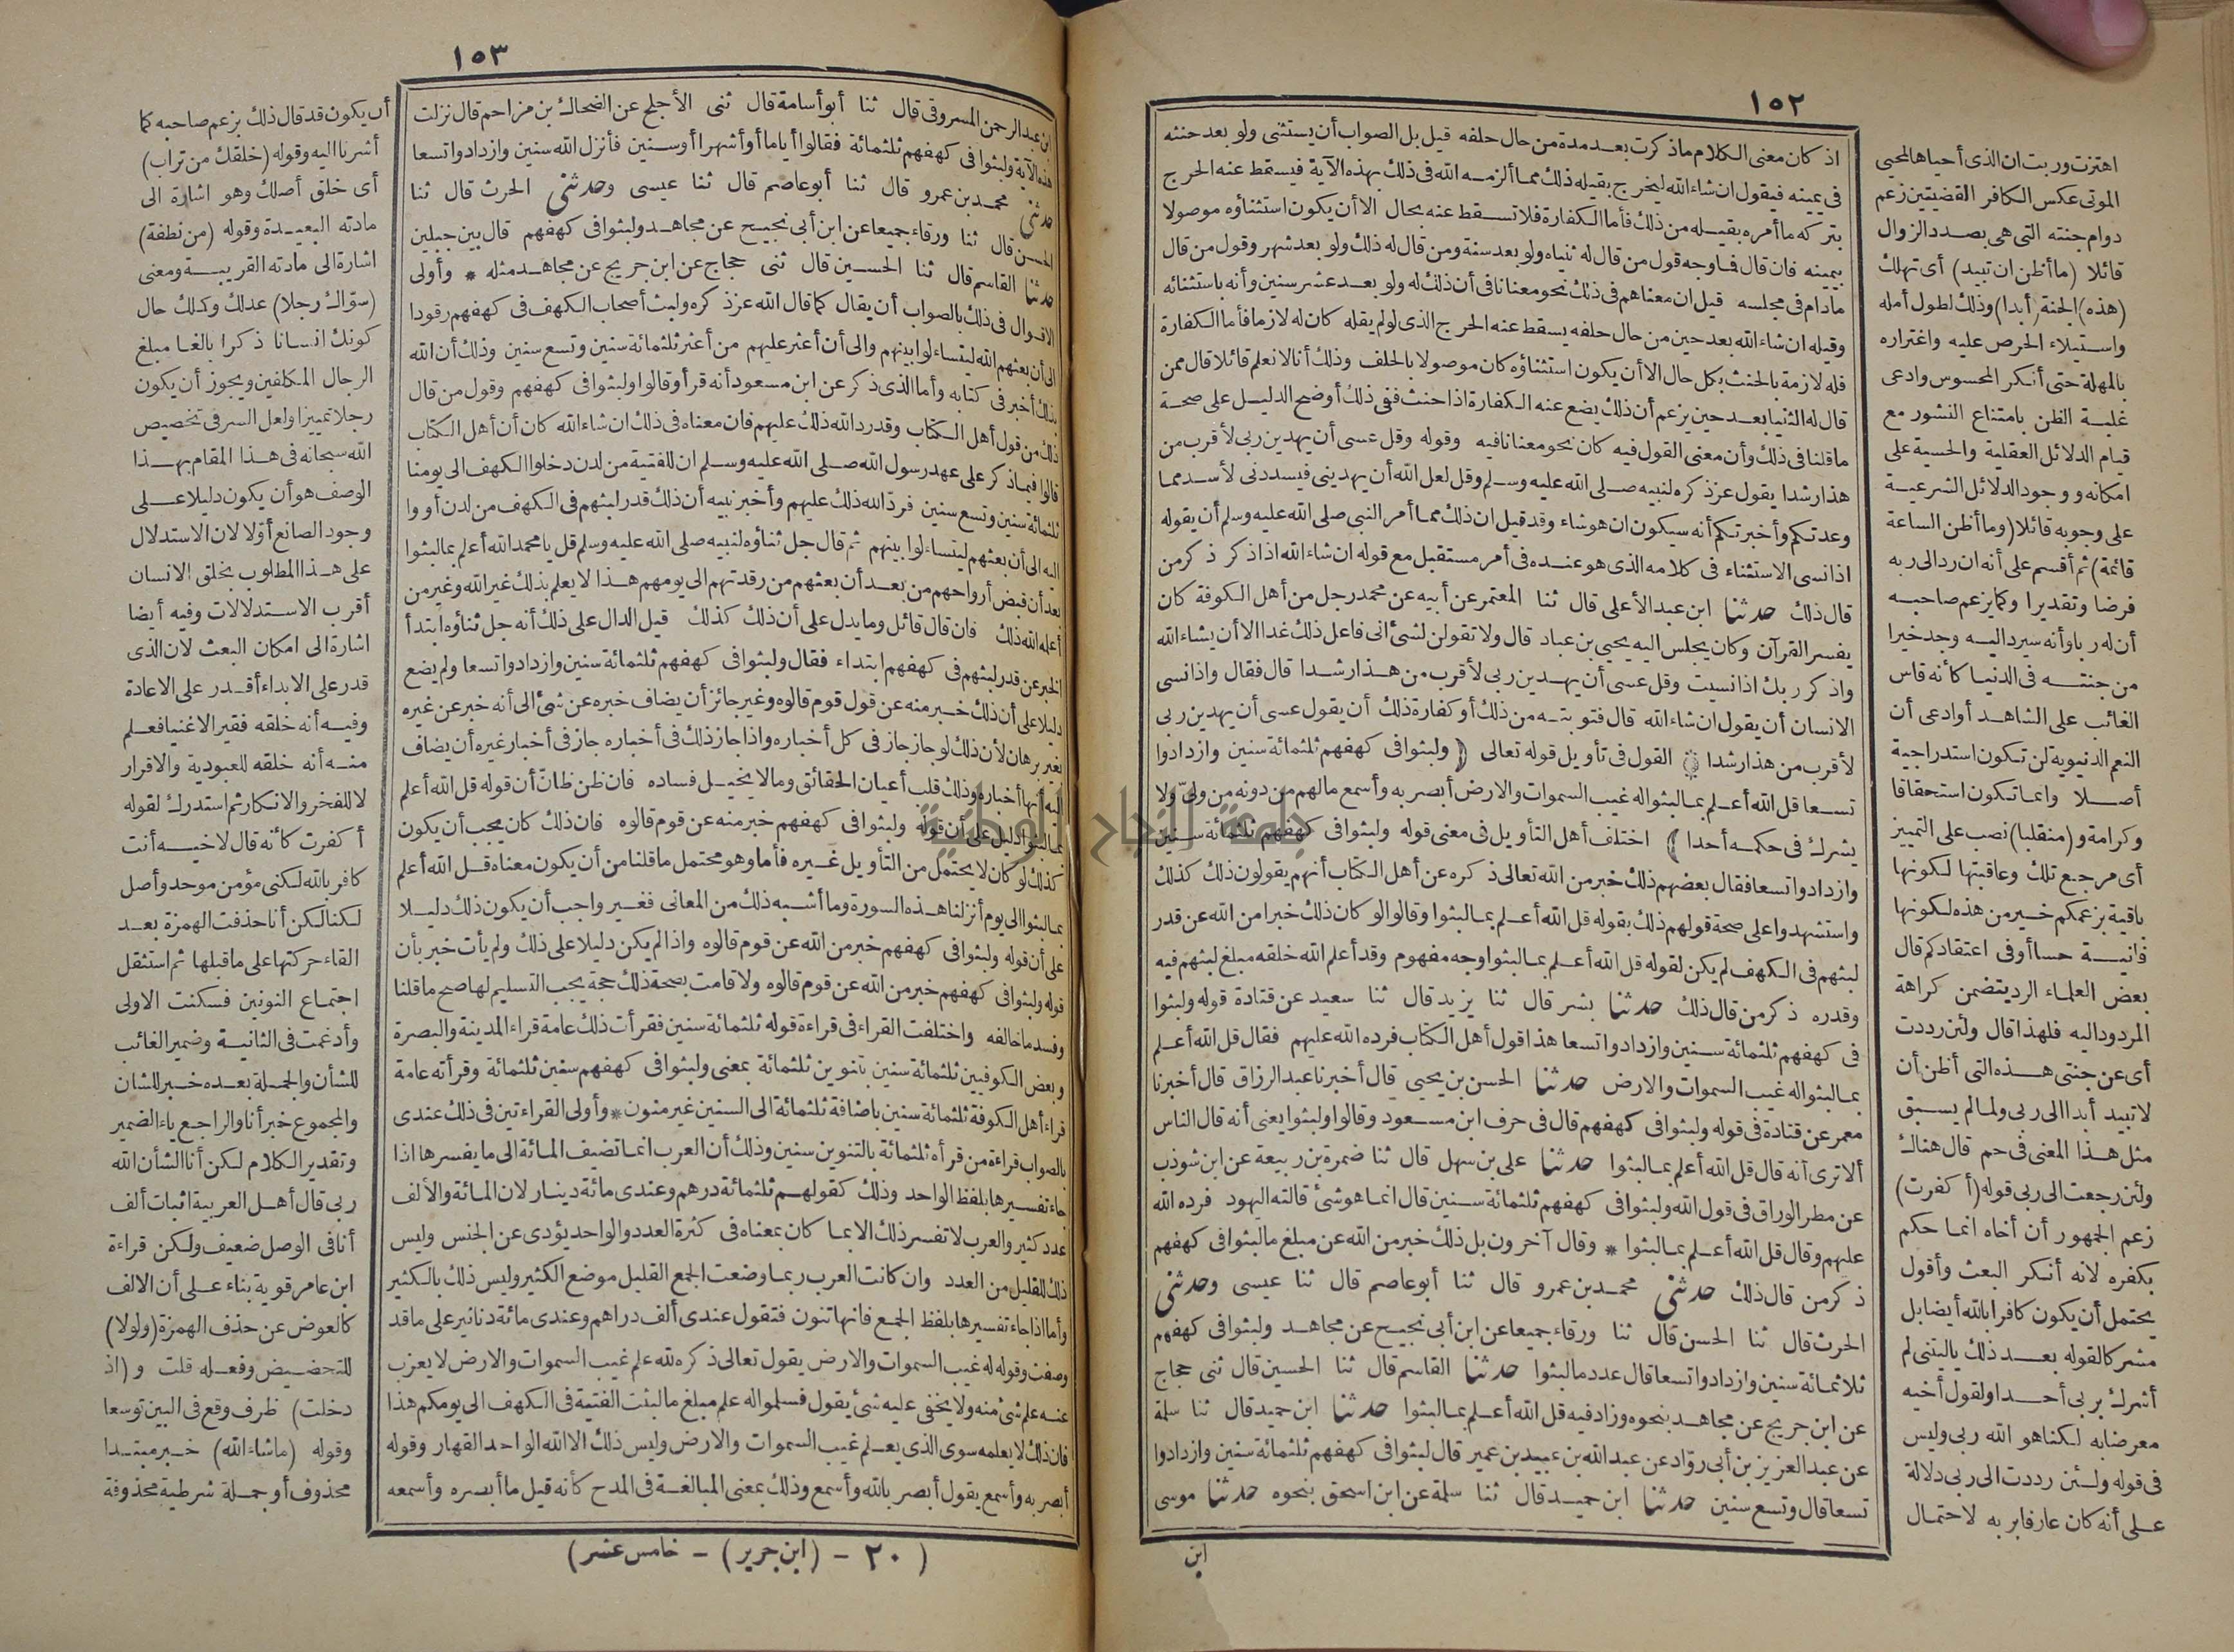 ١٥٢
اذ كان معنى الكلام ماذكرت بعد مدة من حال حلفه قيل بل الصواب أن يستثنى ولو بعد حنثه
فى يمينه فيقول ان شاء الله ليخرج بقيله ذلك مما ألزمه الله فى ذلك بهذه الآية فيسقط عنه الحرج
بتركه ما أمره بقيله من ذلك فأما الكفارة فلا تسقط عنه بحال الا أن يكون استثناؤه موصولا
بيمينه فان قال فما وجه قول من قال له ثنياه ولو بعد سنة ومن قال له ذلك ولو بعد شهر وقول من قال
مادام فى مجلسه قيل ان معناهم فى ذلك نحو معنانا فى أن ذلك له ولو بعد عشر سنين وأنه باستثنائه
وقيله ان شاء الله بعد حين من حال حلفه يسقط عنه الحرج الذى لو لم يقله كان له لازما فأما الكفارة
فله لازمة بالحنث بكل حال الا أن يكون استثناؤه كان موصولا بالحلف وذلك أنا لا نعلم قائلا قال ممن
قال له الثنيا بعد حين يزعم أن ذلك يضع عنه الكفارة اذا حنث ففى ذلك أوضح الدليل على صحة
ماقلنا فى ذلك وأن معنى القول فيه كان نحو معنانا فيه وقوله وقل عسى أن يهدين ربى لأقرب من
هذا رشدا يقول عز ذكره لنبيه صلى الله عليه وسلم وقل لعل الله أن يهدينى فيسددنى لأسد مما
وعدتكم وأخبرتكم أنه سيكون ان هو شاء وقد قيل ان ذلك مما أمر النبى صلى الله عليه وسلم أن يقوله
اذا نسى الاستثناء فى كلامه الذى هو عنده فى أمر مستقبل مع قوله ان شاء الله اذا ذكر ذكر من
قال ذلك حدثنا ابن عبد الأعلى قال ثنا المعتمر عن أبيه عن محمد رجل من أهل الكوفة كان
يفسر القرآن وكان يجلس اليه يحيى بن عباد قال ولا تقولن لشئ انى فاعل ذلك غدا الا أن يشاء الله
واذكر ربك اذا نسيت وقل عسى أن يهدين ربى لأقرب من هذا رشدا قال فقال واذا نسى
الانسان أن يقول ان شاء الله قال فتوبته من ذلك أو كفارة ذلك أن يقول عسى أن يهدين ربى
لأقرب من هذا رشدا ۞ القول فى تأويل قوله تعالى ﴿ ولبثوا فى كهفهم ثلثمائة سنين وازدادوا
تسعا قل الله أعلم بما لبثوا له غيب السموات والارض أبصر به وأسمع مالهم من دونه من ولىّ ولا
يشرك فى حكمه أحدا ﴾ اختلف أهل التأويل فى معنى قوله ولبثوا فى كهفهم ثلثمائة سنين
وازدادوا تسعا فقال بعضهم ذلك خبر من الله تعالى ذكره عن أهل الكتاب أنهم يقولون ذلك كذلك
واستشهدوا على صحة قولهم ذلك بقوله قل الله أعلم بما لبثوا وقالوا لو كان ذلك خبرا من الله عن قدر
لبثهم فى الكهف لم يكن لقوله قل الله أعلم بما لبثوا وجه مفهوم وقد أعلم الله خلقه مبلغ لبثهم فيه
وقدره ذكر من قال ذلك حدثنا بشر قال ثنا يزيد قال ثنا سعيد عن قتادة قوله ولبثوا
فى كهفهم ثلثمائة سنين وازدادوا تسعا هذا قول أهل الكتاب فرده الله عليهم فقال قل الله أعلم
بما لبثوا له غيب السموات والارض حدثنا الحسن بن يحيى قال أخبرنا عبد الرزاق قال أخبرنا
معمر عن قتادة فى قوله ولبثوا فى كهفهم قال فى حرف ابن مسعود وقالوا ولبثوا يعنى أنه قال الناس
ألا ترى أنه قال قل الله أعلم بما لبثوا حدثنا على بن سهل قال ثنا ضمرة بن ربيعة عن ابن شوذب
عن مطر الوراق فى قول الله ولبثوا فى كهفهم ثلثمائة سنين قال انما هو شئ قالته اليهود فرده الله
عليهم وقال قل الله أعلم بما لبثوا * وقال آخرون بل ذلك خبر من الله عن مبلغ ما لبثوا فى كهفهم
ذكر من قال ذلك حدثنى محمد بن عمرو قال ثنا أبو عاصم قال ثنا عيسى وحدثنى
الحرث قال ثنا الحسن قال ثنا ورقاء جميعا عن ابن أبى نجيح عن مجاهد ولبثوا فى كهفهم
ثلاثمائة سنين وازدادوا تسعا قال عدد ما لبثوا حدثنا القاسم قال ثنا الحسين قال ثنى حجاج
عن ابن جريج عن مجاهد بنحوه وزاد فيه قل الله أعلم بما لبثوا حدثنا ابن حميد قال ثنا سلمة
عن عبد العزيز بن أبى روّاد عن عبد الله بن عبيد بن عمير قال لبثوا فى كهفهم ثلثمائة سنين وازدادوا
تسعا قال وتسع سنين حدثنا ابن حميد قال ثنا سلمة عن ابن اسحق بنحوه حدثنا موسى
ابن
اهتزت وربت ان الذى أحياها لمحيى
الموتى عكس الكافر القضيتين زعم
دوام جنته التى هى بصدد الزوال
قائلا (ما أظن ان تبيد) أى تهلك
(هذه) الجنة (أبدا) وذلك لطول أمله
واستيلاء الحرص عليه واغتراره
بالمهلة حتى أنكر المحسوس وادعى
غلبة الظن بامتناع النشور مع
قيام الدلائل العقلية والحسية على
امكانه ووجود الدلائل الشرعية
على وجوبه قائلا (وما أظن الساعة
قائمة) ثم أقسم على أنه ان رد الى ربه
فرضا وتقديرا وكما يزعم صاحبه
أن له ربا وأنه سيرد اليه وجد خيرا
من جنته فى الدنيا كأنه قاس
الغائب على الشاهد أو ادعى أن
النعم الدنيوية لن تكون استدراجية
أصلا وانما تكون استحقاقا
وكرامة و(منقلبا) نصب على التمييز
أى مرجع تلك وعاقبتها لكونها
باقية بزعمكم خير من هذه لكونها
فانية حسا أو فى اعتقادكم قال
بعض العلماء الرد يتضمن كراهة
المردود اليه فلهذا قال ولئن رددت
أى عن جنتى هذه التى أظن أن
لا تبيد أبدا الى ربى ولما لم يسبق
مثل هذا المعنى فى حم قال هناك
ولئن رجعت الى ربى قوله (أكفرت)
زعم الجمهور أن أخاه انما حكم
بكفره لانه أنكر البعث وأقول
يحتمل أن يكون كافرا بالله أيضا بل
مشركا لقوله بعد ذلك ياليتنى لم
أشرك بربى أحدا ولقول أخيه
معرضا به لكنا هو الله ربى وليس
فى قوله ولئن رددت الى ربى دلالة
على أنه كان عارفا بربه لاحتمال
١٥٣
ابن عبد الرحمن المسروقى قال ثنا أبو أسامة قال ثنى الأجلح عن الضحاك بن مزاحم قال نزلت
هذه الآية ولبثوا فى كهفهم ثلثمائة فقالوا أياما أو أشهرا أو سنين فأنزل الله سنين وازدادوا تسعا
حدثنى محمد بن عمرو قال ثنا أبو عاصم قال ثنا عيسى وحدثنى الحرث قال ثنا
الحسن قال ثنا ورقاء جميعا عن ابن أبى نجيح عن مجاهد ولبثوا فى كهفهم قال بين جبلين
حدثنا القاسم قال ثنا الحسين قال ثنى حجاج عن ابن جريج عن مجاهد مثله * وأولى
الاقوال فى ذلك بالصواب أن يقال كما قال الله عز ذكره ولبث أصحاب الكهف فى كهفهم رقودا
الى أن بعثهم الله ليتساءلوا بينهم والى أن أعثر عليهم من أعثر ثلثمائة سنين وتسع سنين وذلك أن الله
بذلك أخبر فى كتابه وأما الذى ذكر عن ابن مسعود أنه قرأ وقالوا ولبثوا فى كهفهم وقول من قال
ذلك من قول أهل الكتاب وقد رد الله ذلك عليهم فان معناه فى ذلك ان شاء الله كان أن أهل الكتاب
قالوا فيما ذكر على عهد رسول الله صلى الله عليه وسلم ان للفتية من لدن دخلوا الكهف الى يومنا
ثلثمائة سنين وتسع سنين فردّ الله ذلك عليهم وأخبر نبيه أن ذلك قدر لبثهم فى الكهف من لدن أووا
اليه الى أن بعثهم ليتساءلوا بينهم ثم قال جل ثناؤه لنبيه صلى الله عليه وسلم قل يا محمد الله أعلم بما لبثوا
بعد أن قبض أرواحهم من بعد أن بعثهم من رقدتهم الى يومهم هذا لا يعلم بذلك غير الله وغير من
أعلمه الله ذلك فان قال قائل وما يدل على أن ذلك كذلك قيل الدال على ذلك أنه جل ثناؤه ابتدأ
الخبر عن قدر لبثهم فى كهفهم ابتداء فقال ولبثوا فى كهفهم ثلثمائة سنين وازدادوا تسعا ولم يضع
دليلا على أن ذلك خبر منه عن قول قوم قالوه وغير جائز أن يضاف خبره عن شئ الى أنه خبر عن غيره
بغير برهان لأن ذلك لو جاز جاز فى كل أخباره واذا جاز ذلك فى أخباره جاز فى أخبار غيره أن يضاف
اليه أنها أخباره وذلك قلب أعيان الحقائق وما لا يخيل فساده فان ظن ظانّ أن قوله قل الله أعلم
بما لبثوا دليل على أن قوله ولبثوا فى كهفهم خبر منه عن قوم قالوه فان ذلك كان يجب أن يكون
كذلك لو كان لا يحتمل من التأويل غيره فأما وهو محتمل ما قلنا من أن يكون معناه قل الله أعلم
بما لبثوا الى يوم أنزلنا هذه السورة وما أشبه ذلك من المعانى فغير واجب أن يكون ذلك دليلا
على أن قوله ولبثوا فى كهفهم خبر من الله عن قوم قالوه واذا لم يكن دليلا على ذلك ولم يأت خبر بأن
قوله ولبثوا فى كهفهم خبر من الله عن قوم قالوه ولا قامت بصحة ذلك حجة يجب التسليم لها صح ما قلنا
وفسد ما خالفه واختلفت القراء فى قراءة قوله ثلثمائة سنين فقرأت ذلك عامة قراء المدينة والبصرة
وبعض الكوفيين ثلثمائة سنين بتنوين ثلثمائة بمعنى ولبثوا فى كهفهم سنين ثلثمائة وقرأته عامة
قراء أهل الكوفة ثلثمائة سنين باضافة ثلثمائة الى السنين غير منون * وأولى القراءتين فى ذلك عندى
بالصواب قراءة من قرأه ثلثمائة بالتنوين سنين وذلك أن العرب انما تضيف المائة الى ما يفسرها اذا
جاء تفسيرها بلفظ الواحد وذلك كقولهم ثلثمائة درهم وعندى مائة دينار لان المائة والألف
عدد كثير والعرب لا تفسر ذلك الا بما كان بمعناه فى كثرة العدد والواحد يؤدى عن الجنس وليس
ذلك للقليل من العدد وان كانت العرب ربما وضعت الجمع القليل موضع الكثير وليس ذلك بالكثير
وأما اذا جاء تفسيرها بلفظ الجمع فانها تنون فتقول عندى ألف دراهم وعندى مائة دنانير على ما قد
وصفت وقوله له غيب السموات والارض يقول تعالى ذكره لله علم غيب السموات والارض لا يعزب
عنه علم شئ منه ولا يخفى عليه شئ يقول فسلموا له علم مبلغ ما لبثت الفتية فى الكهف الى يومكم هذا
فان ذلك لا يعلمه سوى الذى يعلم غيب السموات والارض وليس ذلك الا الله الواحد القهار وقوله
أبصر به وأسمع يقول أبصر بالله وأسمع وذلك بمعنى المبالغة فى المدح كأنه قيل ما أبصره وأسمعه
(٢٠ - (ابن جرير) - خامس عشر)
أن يكون قد قال ذلك بزعم صاحبه كما
أشرنا اليه وقوله (خلقك من تراب)
أى خلق أصلك وهو اشارة الى
مادته البعيدة وقوله (من نطفة)
اشارة الى مادته القريبة ومعنى
(سوّاك رجلا) عدلك وكملك حال
كونك انسانا ذكرا بالغا مبلغ
الرجال المكلفين ويجوز أن يكون
رجلا تمييزا ولعل السر فى تخصيص
الله سبحانه فى هذا المقام بهذا
الوصف هو أن يكون دليلا على
وجود الصانع أوّلا لان الاستدلال
على هذا المطلوب بخلق الانسان
أقرب الاستدلالات وفيه أيضا
اشارة الى امكان البعث لان الذى
قدر على الابداء أقدر على الاعادة
وفيه أنه خلقه فقيرا لاغنيا فعلم
منه أنه خلقه للعبودية والاقرار
لا للفخر والانكار ثم استدرك لقوله
أكفرت كأنه قال لاخيه أنت
كافر بالله لكنى مؤمن موحد وأصل
لكنا لكن أنا حذفت الهمزة بعد
القاء حركتها على ما قبلها ثم استثقل
اجتماع النونين فسكنت الاولى
وأدغمت فى الثانية وضمير الغائب
للشأن والجملة بعده خبر للشان
والمجموع خبر أنا والراجع ياء الضمير
وتقدير الكلام لكن أنا الشأن الله
ربى قال أهل العربية اثبات ألف
أنا فى الوصل ضعيف ولكن قراءة
ابن عامر قوية بناء على أن الالف
كالعوض عن حذف الهمزة (ولولا)
للتحضيض وفعله قلت و(اذ
دخلت) ظرف وقع فى البين توسعا
وقوله (ماشاء الله) خبر مبتدا
محذوف أو جملة شرطية محذوفة
جامعة النجاح الوطنية